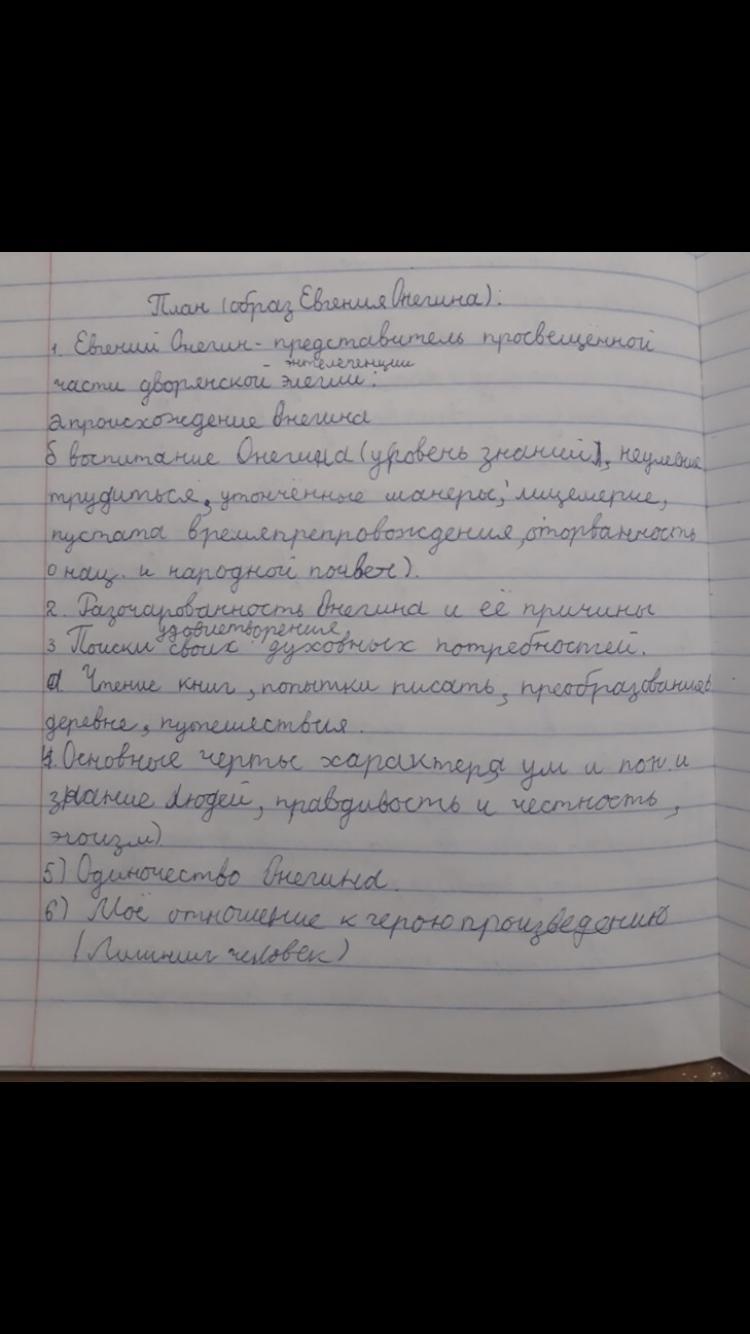 План (образ Евгения Онегина):
1. Евгений Онегин - представитель просвещённой
- энтелегенции
части дворянской элегии:
а происхождение Онегина
б воспитание Онегина (уровень знаний), неумение
трудиться, утончённые манеры, лицемерие,
пустата времяпрепровождения, оторванность
о нац. и народной почвен).
2. Разочарованность Онегина и её причины
удовлетворения,
3 Поиски своих духовных потребностей.
а Чтение книг, попытки писать, преобразование в
деревне, путешествия.
4. Основные черты характера, ум и пон. и
знание людей, правдивость и честность,
эгоизм)
5) Одиночество Онегина.
6) Моё отношение к герою произведению
(Лишний человек)